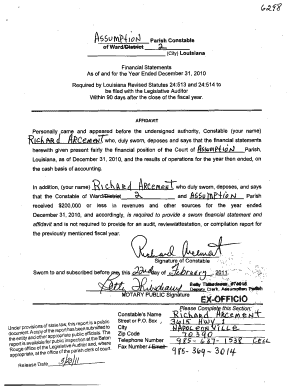 6298
ASSUMPTION Parish Constable
of Ward/District 2
(City) Louisiana
Financial Statements
As of and for the Year Ended December 31, 2010
Required by Louisiana Revised Statutes 24:513 and 24:514 to
be filed with the Legislative Auditor
Within 90 days after the close of the fiscal year.
AFFIDAVIT
Personally came and appeared before the undersigned authority, Constable (your name)
Richard ARCEMENT who duly sworn, deposes and says that the financial statements
herewith given present fairly the financial position of the Court of ASSUMPTION Parish,
Louisiana, as of December 31, 2010, and the results of operations for the year then ended, on
the cash basis of accounting.
In addition, (your name) Richard ARCEMENT who duly sworn, deposes, and says
that the Constable of Ward/District 2 and ASSUMPTION Parish
received $200,000 or less in revenues and other sources for the year ended
December 31, 2010, and accordingly, is required to provide a sworn financial statement and
affidavit and is not required to provide for an audit, review/attestation, or compilation report for
the previously mentioned fiscal year.
Richard Arcement
Signature of Constable
Sworn to and subscribed before me this 22nd day of February, 2011
Deputy Clerk, Assumption Parish
NOTARY PUBLIC Signature
EX-OFFICIO
Please Complete this Section:
Constable's Name Richard ARCEMENT
Street or P.O. Box 3415 HWY 1
City NAPOLEONVILLE
Zip Code 70390
Telephone Number 985-637-1538 CELL
Fax Number / Email 985-369-3014
Under provisions of state law, this report is a public
document. A copy of the report has been submitted to
the entity and other appropriate public officials. The
report is available for public inspection at the Baton
Rouge office of the Legislative Auditor and, where
appropriate, at the office of the parish clerk of court.
Release Date